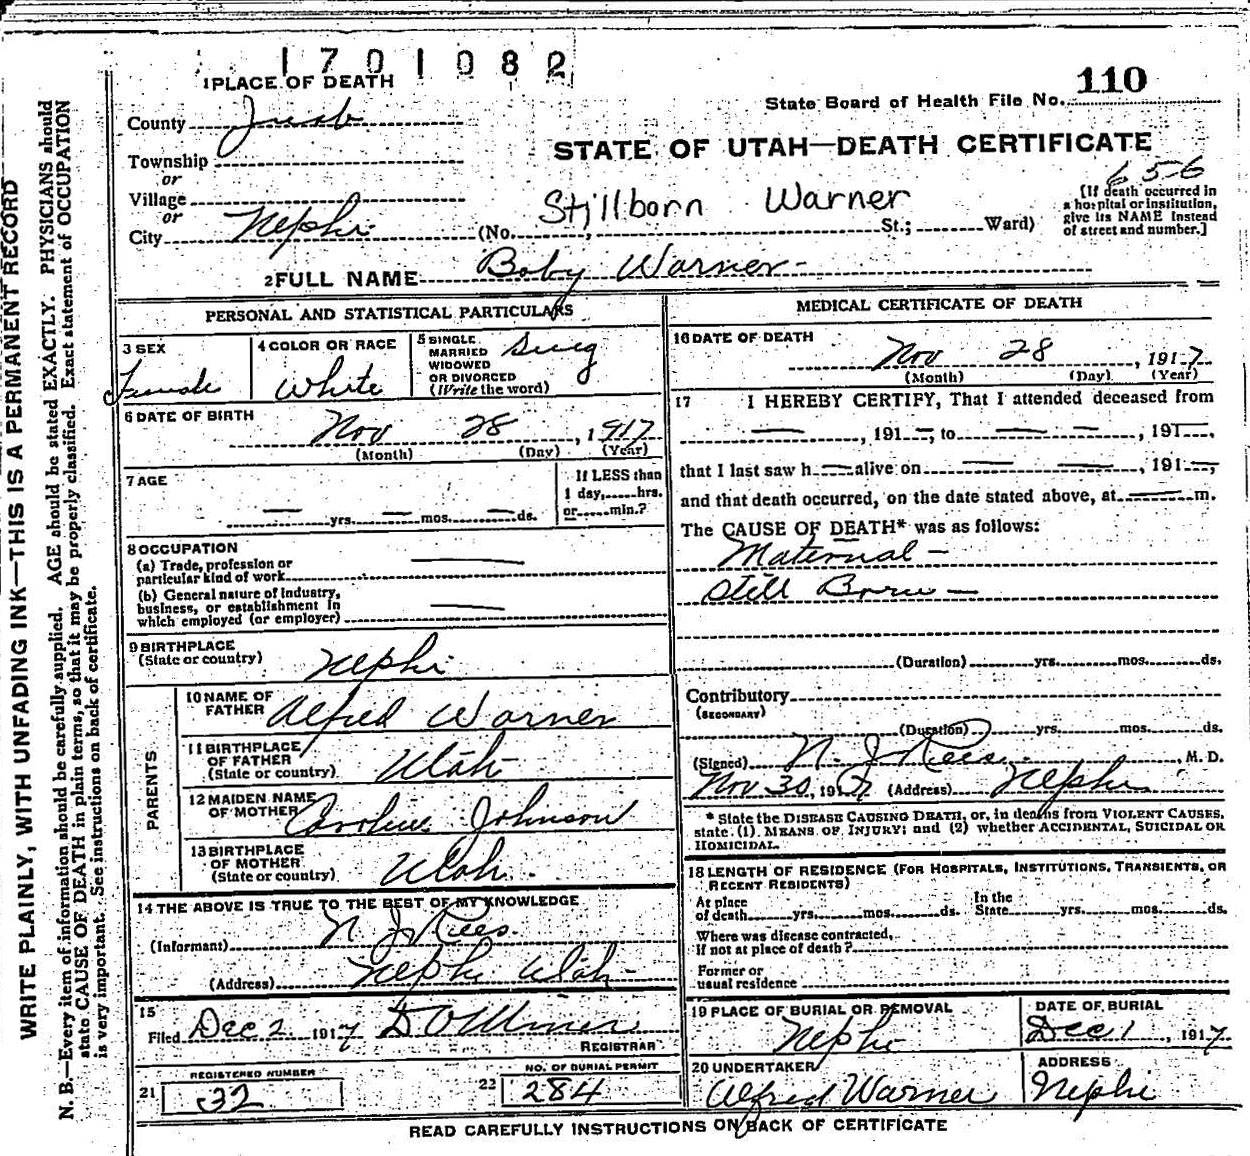 1701082
1 PLACE OF DEATH
110
State Board of Health File No.
County Juab
STATE OF UTAH—DEATH CERTIFICATE
Township
or
Village
or
City Nephi (No. St.; Ward)
Stillborn Warner
656
[If death occurred in
a hospital or institution,
give its NAME instead
of street and number.]
2 FULL NAME Baby Warner
PERSONAL AND STATISTICAL PARTICULARS
3 SEX
Female
4 COLOR OR RACE
White
5 SINGLE
MARRIED
WIDOWED
OR DIVORCED
(Write the word)
Sing
6 DATE OF BIRTH
Nov 28, 1917
(Month) (Day) (Year)
7 AGE
— yrs. — mos. — ds.
If LESS than
1 day, hrs.
or min.?
8 OCCUPATION
(a) Trade, profession or
particular kind of work —
(b) General nature of industry,
business, or establishment in
which employed (or employer) —
9 BIRTHPLACE
(State or country) Nephi
PARENTS
10 NAME OF
FATHER Alfred Warner
11 BIRTHPLACE
OF FATHER
(State or country) Utah
12 MAIDEN NAME
OF MOTHER Caroline Johnson
13 BIRTHPLACE
OF MOTHER
(State or country) Utah
14 THE ABOVE IS TRUE TO THE BEST OF MY KNOWLEDGE
(Informant) N J Rees
(Address) Nephi Utah
15
Filed Dec 2 1917
REGISTRAR
REGISTERED NUMBER
21 32
NO. OF BURIAL PERMIT
22 284
MEDICAL CERTIFICATE OF DEATH
16 DATE OF DEATH
Nov 28, 1917
(Month) (Day) (Year)
17 I HEREBY CERTIFY, That I attended deceased from
—, 191—, to — —, 191—,
that I last saw h— alive on — —, 191—,
and that death occurred, on the date stated above, at — m.
The CAUSE OF DEATH* was as follows:
Maternal —
Still Born —
(Duration) yrs. mos. ds.
Contributory
(SECONDARY)
(Duration) yrs. mos. ds.
(Signed) N. J Rees, M. D.
Nov 30, 1917 (Address) Nephi
* State the DISEASE CAUSING DEATH, or, in deaths from VIOLENT CAUSES,
state (1) MEANS OF INJURY; and (2) whether ACCIDENTAL, SUICIDAL OR
HOMICIDAL.
18 LENGTH OF RESIDENCE (FOR HOSPITALS, INSTITUTIONS, TRANSIENTS, OR
RECENT RESIDENTS)
At place
of death yrs. mos. ds.
In the
State yrs. mos. ds.
Where was disease contracted,
if not at place of death?
Former or
usual residence
19 PLACE OF BURIAL OR REMOVAL
Nephi
DATE OF BURIAL
Dec 1, 1917
20 UNDERTAKER
Alfred Warner
ADDRESS
Nephi
READ CAREFULLY INSTRUCTIONS ON BACK OF CERTIFICATE
WRITE PLAINLY, WITH UNFADING INK—THIS IS A PERMANENT RECORD
N. B.—Every item of information should be carefully supplied. AGE should be stated EXACTLY. PHYSICIANS should
state CAUSE OF DEATH in plain terms, so that it may be properly classified. Exact statement of OCCUPATION
is very important. See instructions on back of certificate.